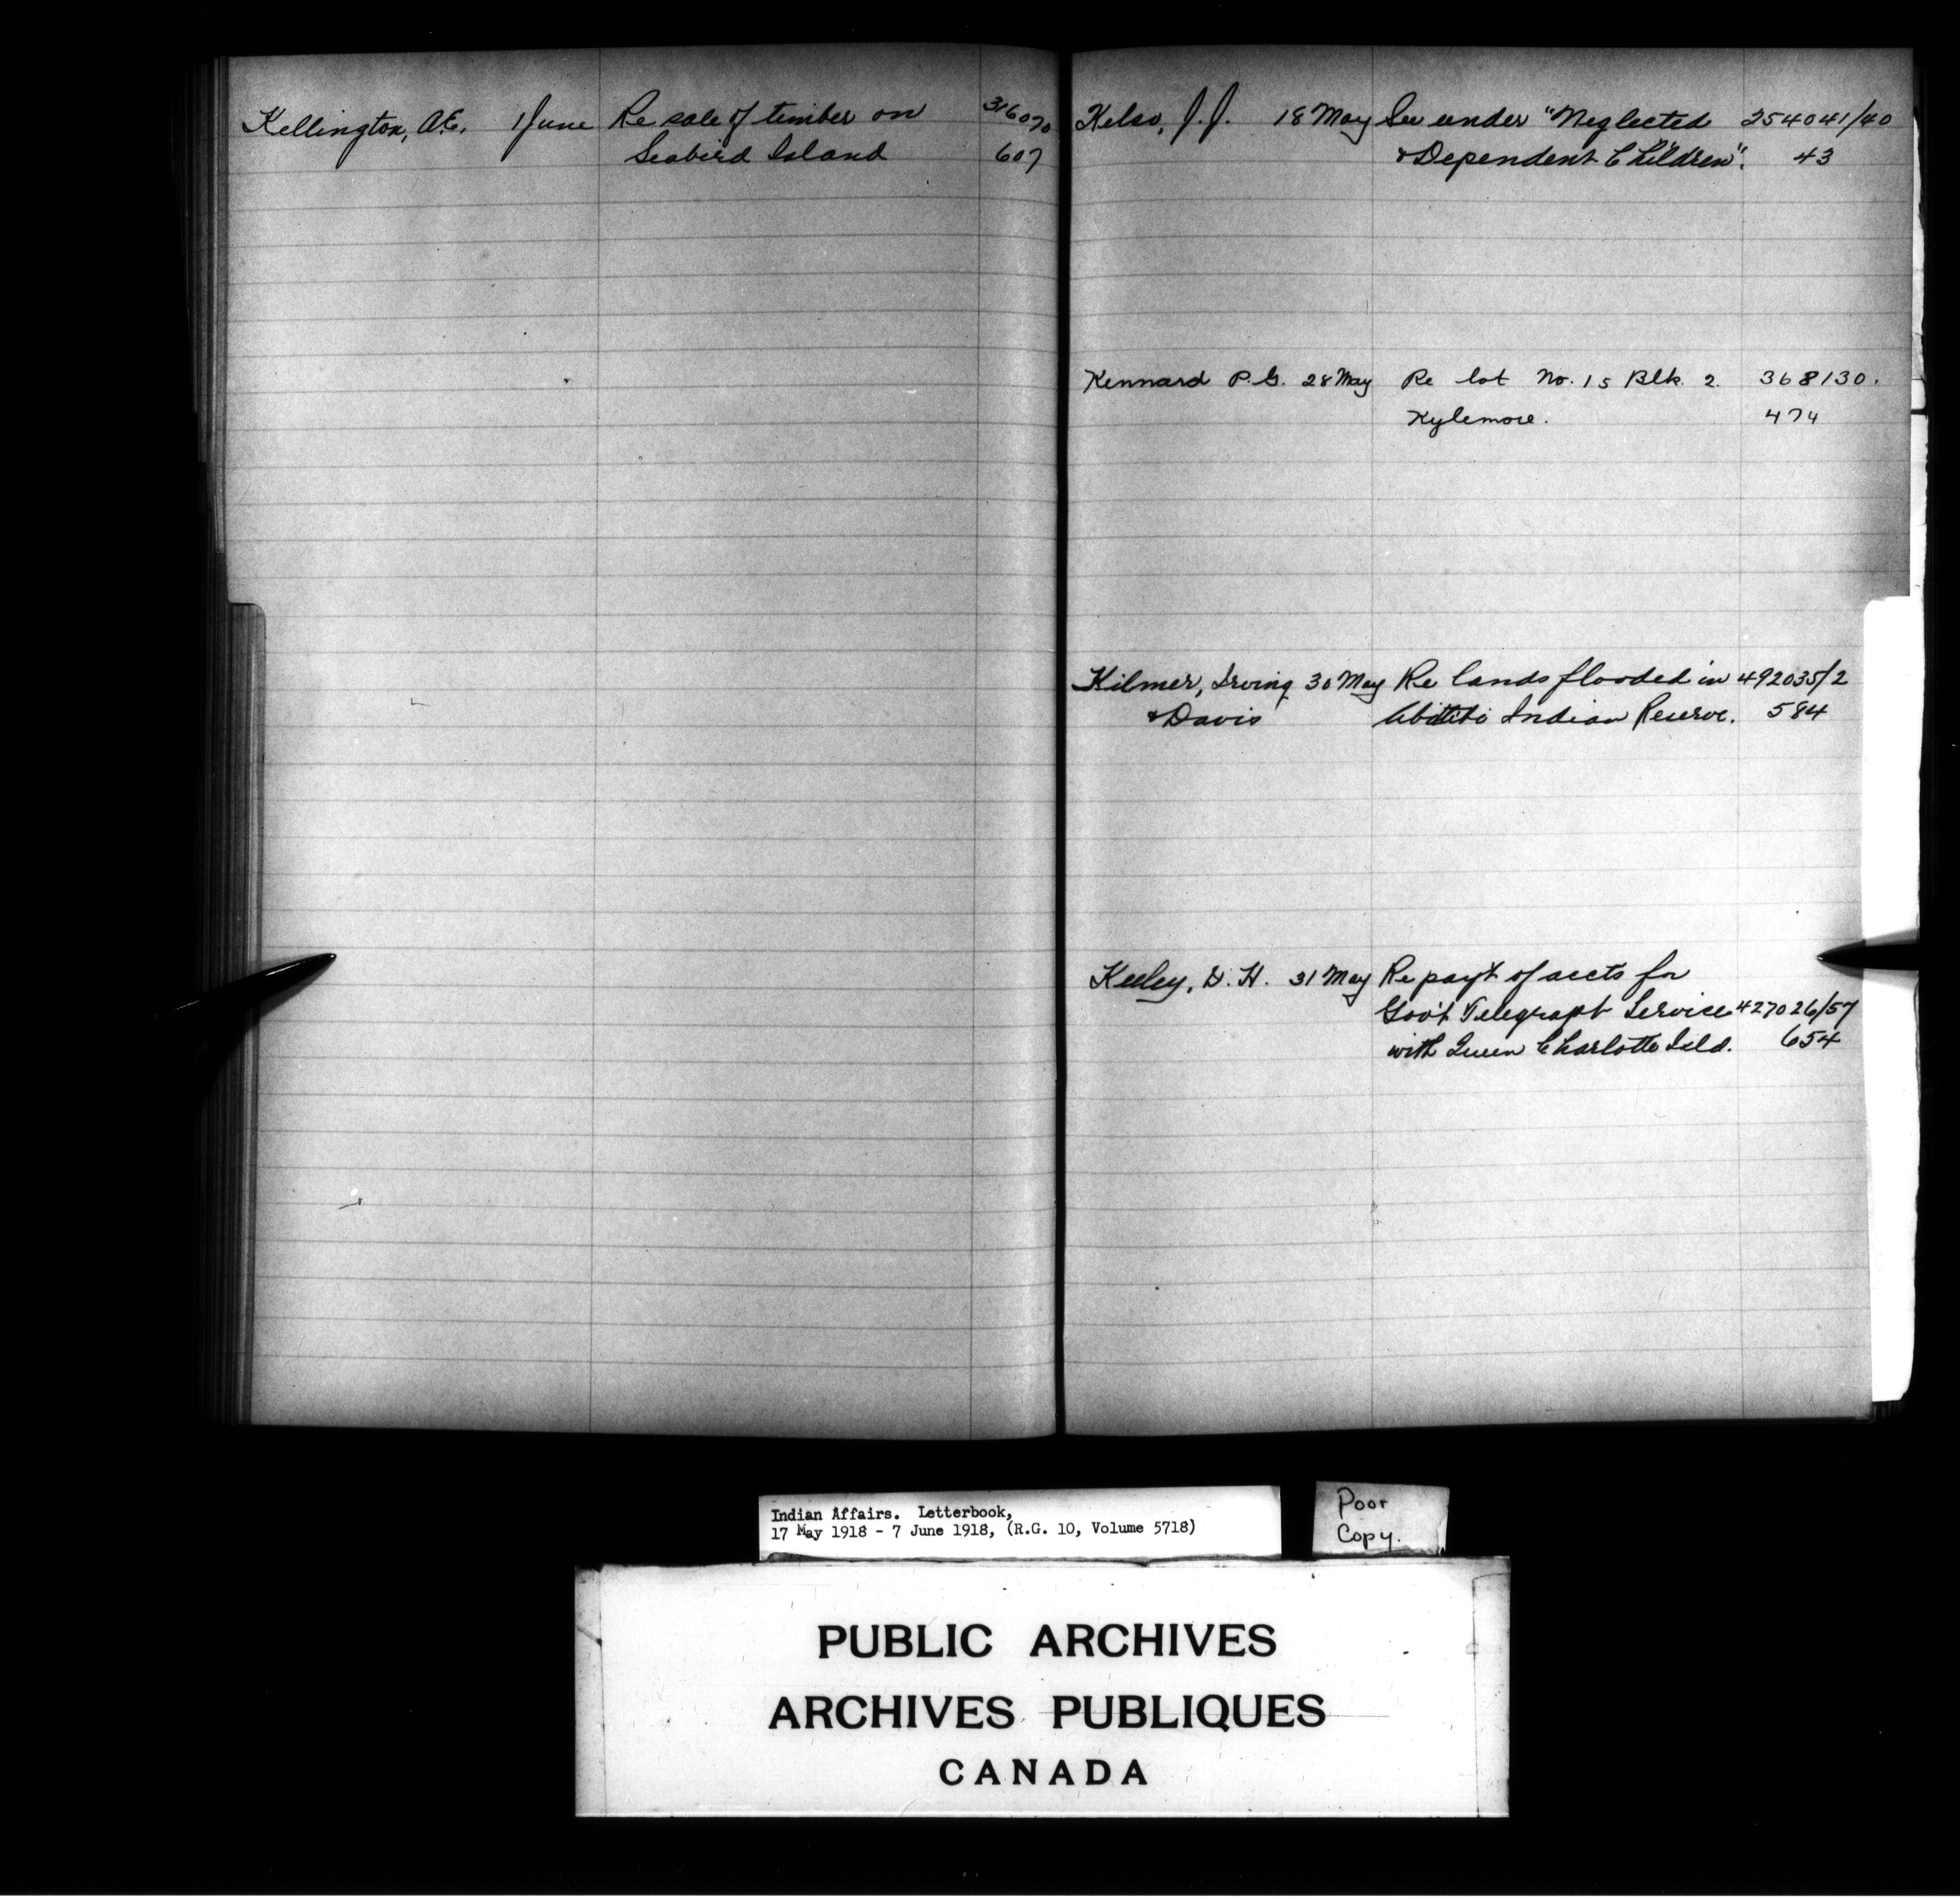 Kellington, A.E. 1 June Re sale of timber on 316070
Seabird Island 607
Kelso, J.J. 18 May See under "Neglected 254041/40
& Dependent Children". 43
Kennard P.G. 28 May Re lot No. 15 Blk. 2. 368130.
Kylemore. 474
Kilmer, Irving 30 May Re lands flooded in 492035/2
& Davis Abitibi Indian Reserve. 584
Keeley, D.H. 31 May Re pay't of accts for
Gov't Telegraph Service 427026/57
with Queen Charlotte Isld. 654
Indian Affairs. Letterbook,
17 May 1918 - 7 June 1918, (R.G. 10, Volume 5718)
Poor
Copy.
PUBLIC ARCHIVES
ARCHIVES PUBLIQUES
CANADA